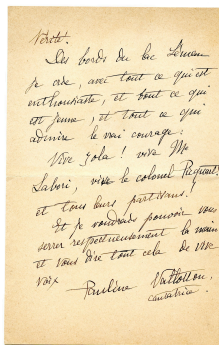 Vérité.
Des bords du lac Léman
je crie, avec tout ce qui est
enthousiaste, et tout ce qui
est jeune, et tout ce qui
admire le vrai courage:
Vive Zola! vive Me
Labori, vive le colonel Picquart!
et tous leurs partisans!
Et je voudrais pouvoir vous
serrer respectueusement la main
et vous dire tout cela de vive
voix
Pauline Vallotton,
cantatrice.